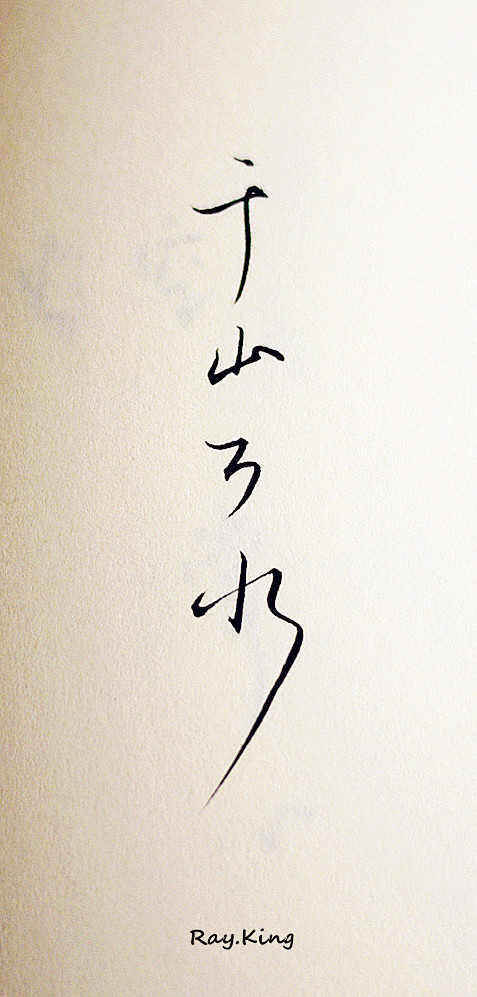 千山万水
Ray.King